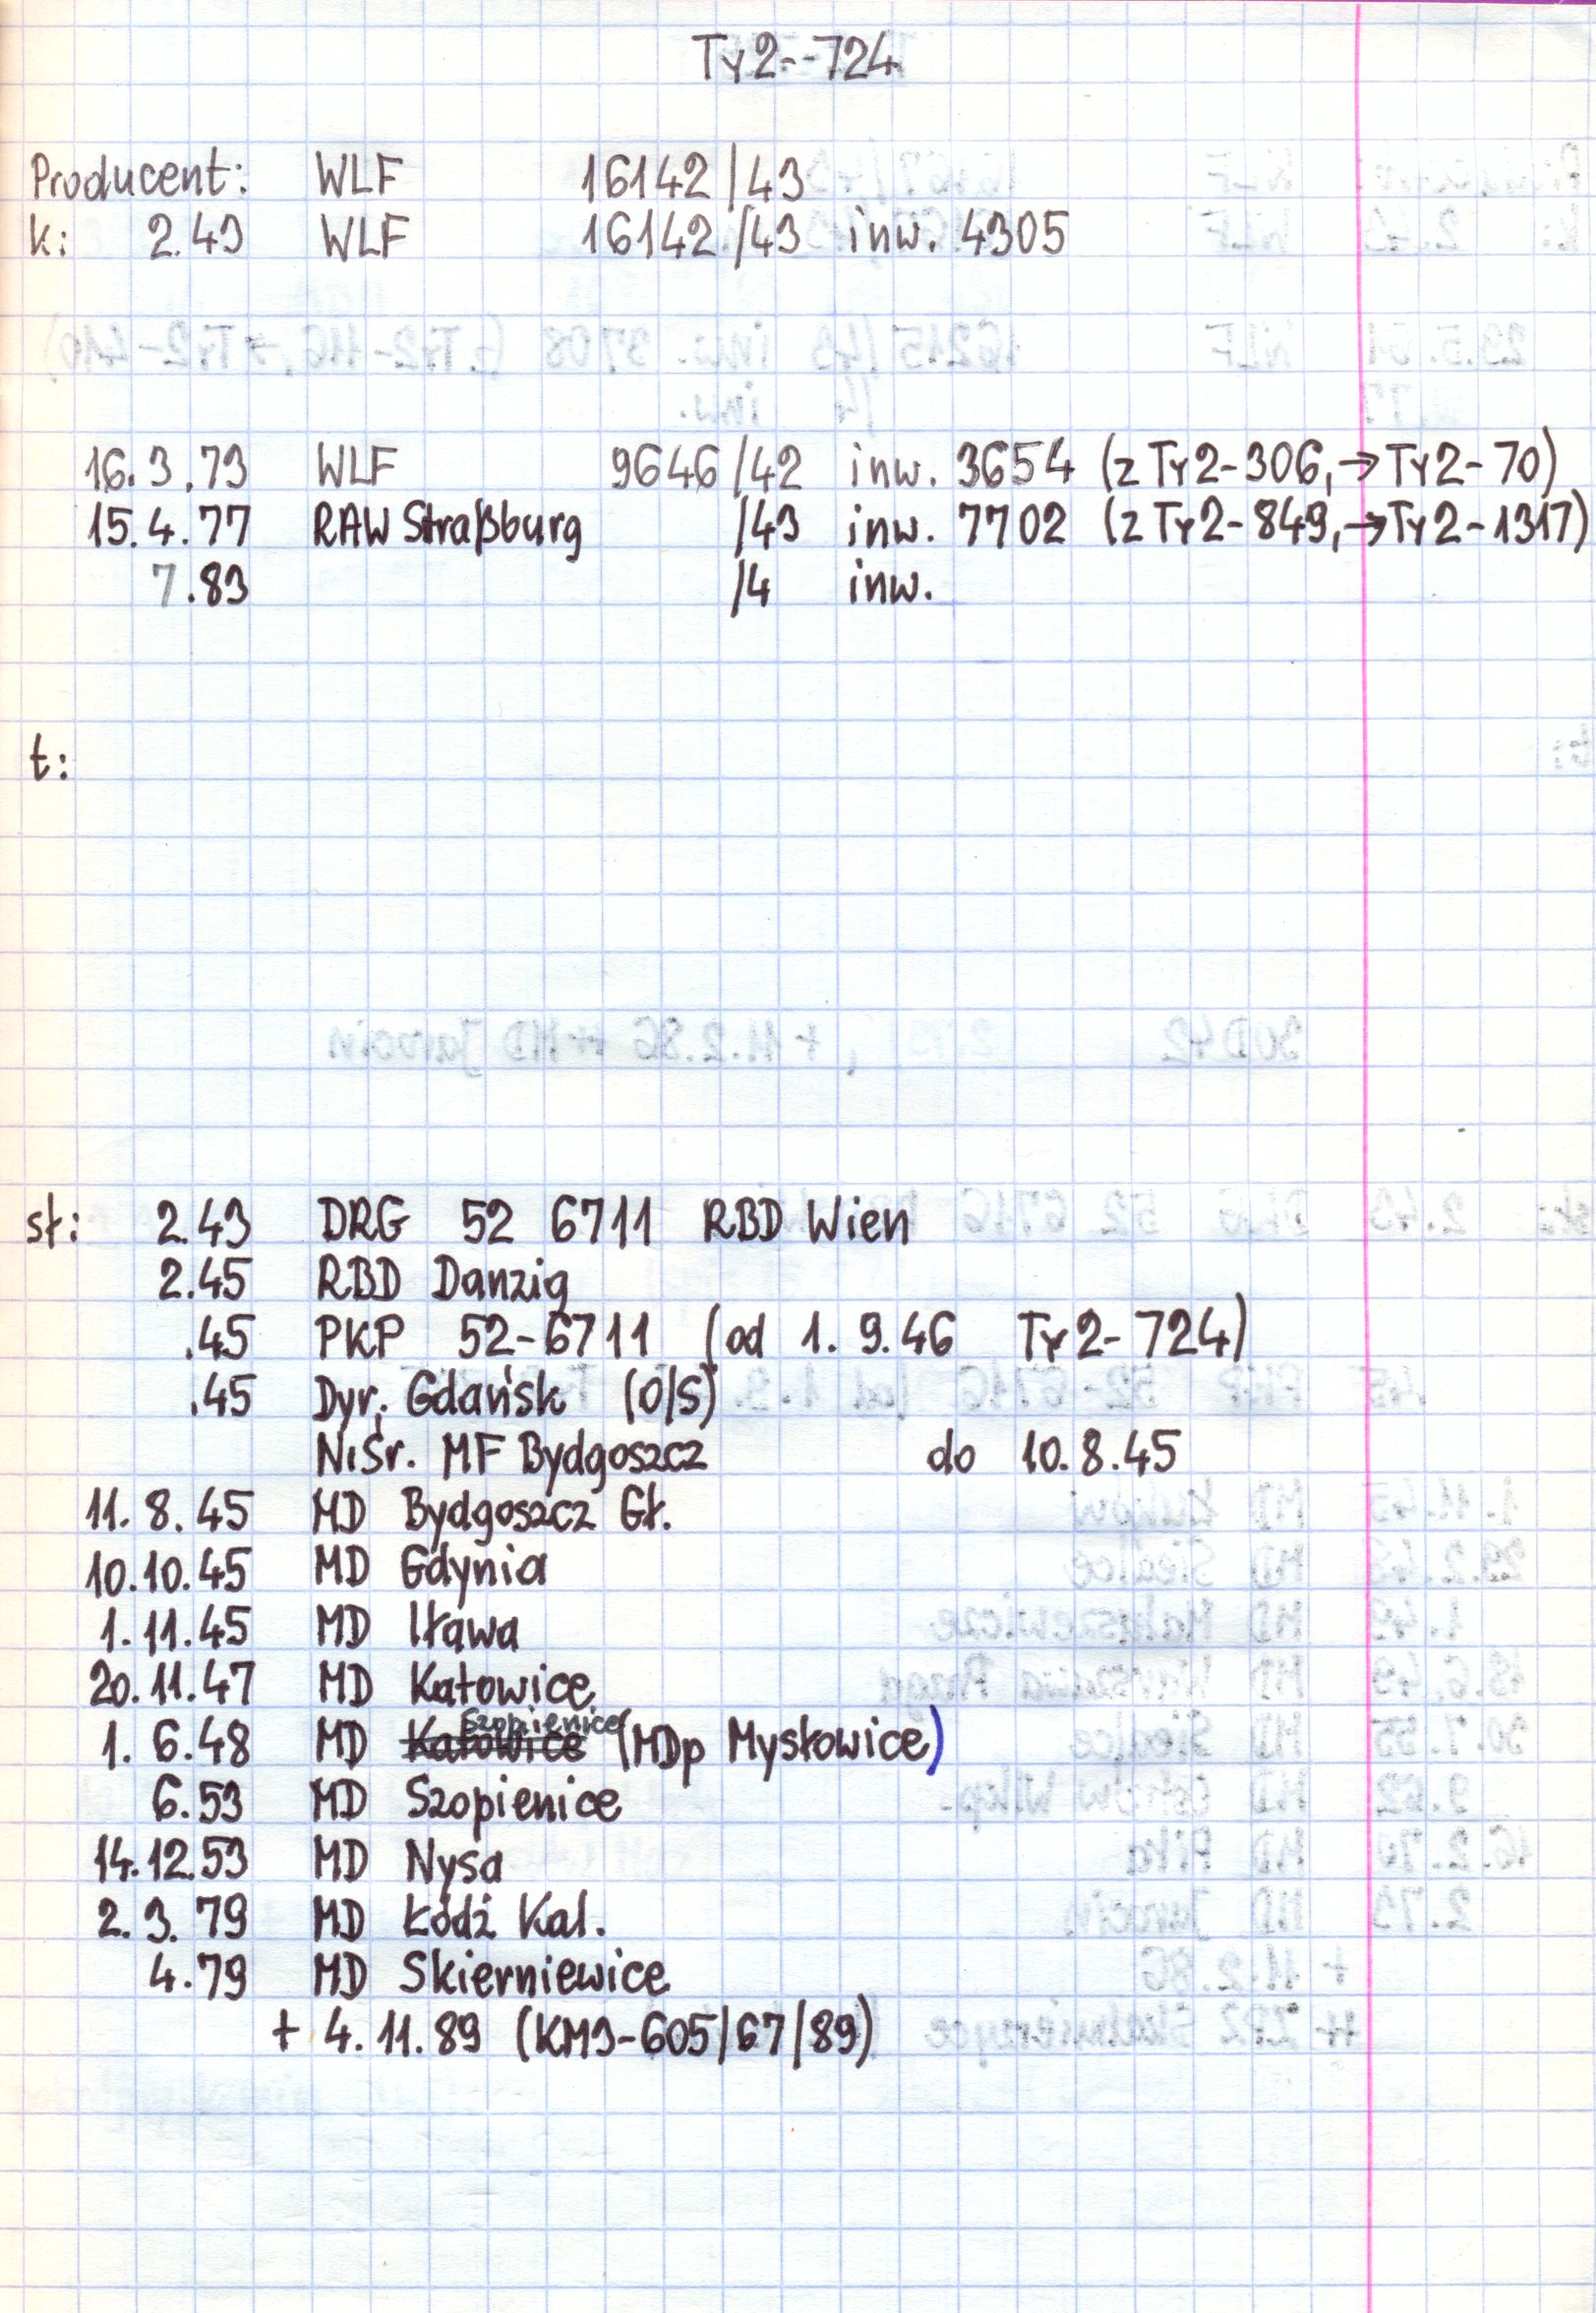 Ty2-724
Producent: WLF 16142/43
k: 2.43 WLF 16142/43 inw. 4305
16.3.73 WLF 9646/42 inw. 3654 (z Ty2-306, → Ty2-70)
15.4.77 RAW Straßburg /43 inw. 7702 (z Ty2-849, → Ty2-1317)
7.83 /4 inw.
t:
sł: 2.43 DRG 52 6711 RBD Wien
2.45 RBD Danzig
.45 PKP 52-6711 (od 1.9.46 Ty2-724)
.45 Dyr. Gdańsk (O/S)
NiŚr. MF Bydgoszcz do 10.8.45
11.8.45 MD Bydgoszcz Gł.
10.10.45 MD Gdynia
1.11.45 MD Iława
20.11.47 MD Katowice
1.6.48 MD Katowice Szopienice (MDp Mysłowice)
6.53 MD Szopienice
14.12.53 MD Nysa
2.3.79 MD Łódź Kal.
4.79 MD Skierniewice
+ 4.11.89 (KM9-605/67/89)